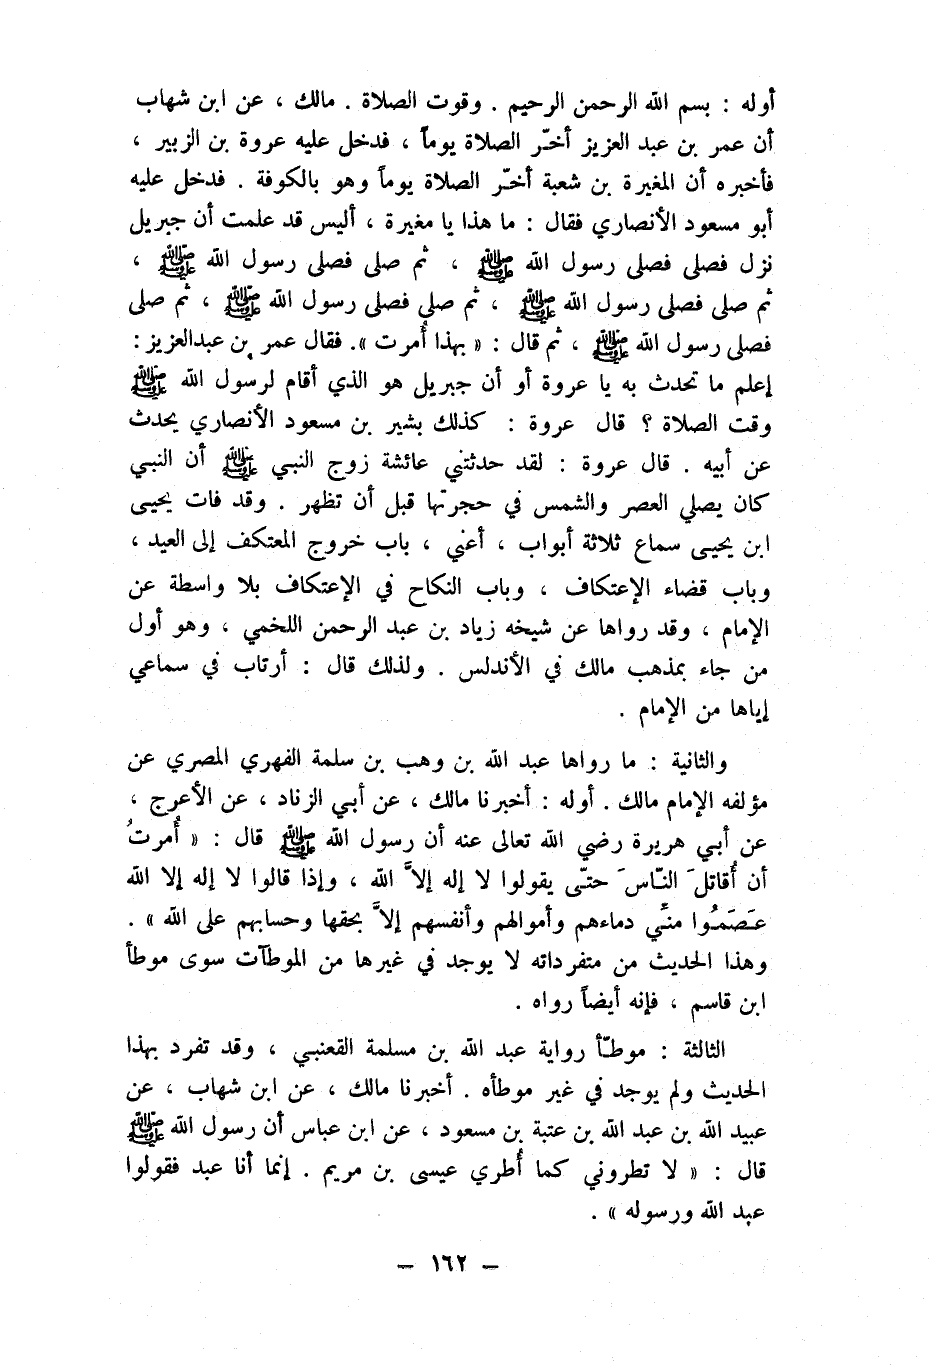 أوله : بسم الله الرحمن الرحيم . وقوت الصلاة . مالك ، عن ابن شهاب
أن عمر بن عبد العزيز أخّر الصلاة يوماً ، فدخل عليه عروة بن الزبير ،
فأخبره أن المغيرة بن شعبة أخّر الصلاة يوماً وهو بالكوفة . فدخل عليه
أبو مسعود الأنصاري فقال : ما هذا يا مغيرة ، أليس قد علمت أن جبريل
نزل فصلى فصلى رسول الله ﷺ ، ثم صلى فصلى رسول الله ﷺ ،
ثم صلى فصلى رسول الله ﷺ ، ثم صلى فصلى رسول الله ﷺ ، ثم صلى
فصلى رسول الله ﷺ ، ثم قال : « بهذا أُمرت ». فقال عمر بن عبدالعزيز :
إعلم ما تحدث به يا عروة أو أن جبريل هو الذي أقام لرسول الله ﷺ
وقت الصلاة ؟ قال عروة : كذلك بشير بن مسعود الأنصاري يحدث
عن أبيه . قال عروة : لقد حدثتني عائشة زوج النبي ﷺ أن النبي
كان يصلي العصر والشمس في حجرتها قبل أن تظهر . وقد فات يحيى
ابن يحيى سماع ثلاثة أبواب ، أعني ، باب خروج المعتكف إلى العيد ،
وباب قضاء الإعتكاف ، وباب النكاح في الإعتكاف بلا واسطة عن
الإمام ، وقد رواها عن شيخه زياد بن عبد الرحمن اللخمي ، وهو أول
من جاء بمذهب مالك في الأندلس . ولذلك قال : أرتاب في سماعي
إياها من الإمام .
والثانية : ما رواها عبد الله بن وهب بن سلمة الفهري المصري عن
مؤلفه الإمام مالك . أوله : أخبرنا مالك ، عن أبي الزناد ، عن الأعرج ،
عن أبي هريرة رضي الله تعالى عنه أن رسول الله ﷺ قال : « أُمرتُ
أن أُقاتلَ النّاسَ حتّى يقولوا لا إله إلاَّ الله ، وإذا قالوا لا إله إلا الله
عَصَمُوا منّي دماءهم وأموالهم وأنفسهم إلاَّ بحقها وحسابهم على الله » .
وهذا الحديث من متفرداته لا يوجد في غيرها من الموطآت سوى موطأ
ابن قاسم ، فإنه أيضاً رواه .
الثالثة : موطّأ رواية عبد الله بن مسلمة القعنبي ، وقد تفرد بهذا
الحديث ولم يوجد في غير موطأه . أخبرنا مالك ، عن ابن شهاب ، عن
عبيد الله بن عبد الله بن عتبة بن مسعود ، عن ابن عباس أن رسول الله ﷺ
قال : « لا تطروني كما أُطري عيسى بن مريم . إنما أنا عبد فقولوا
عبد الله ورسوله » .
– ١٦٢ –